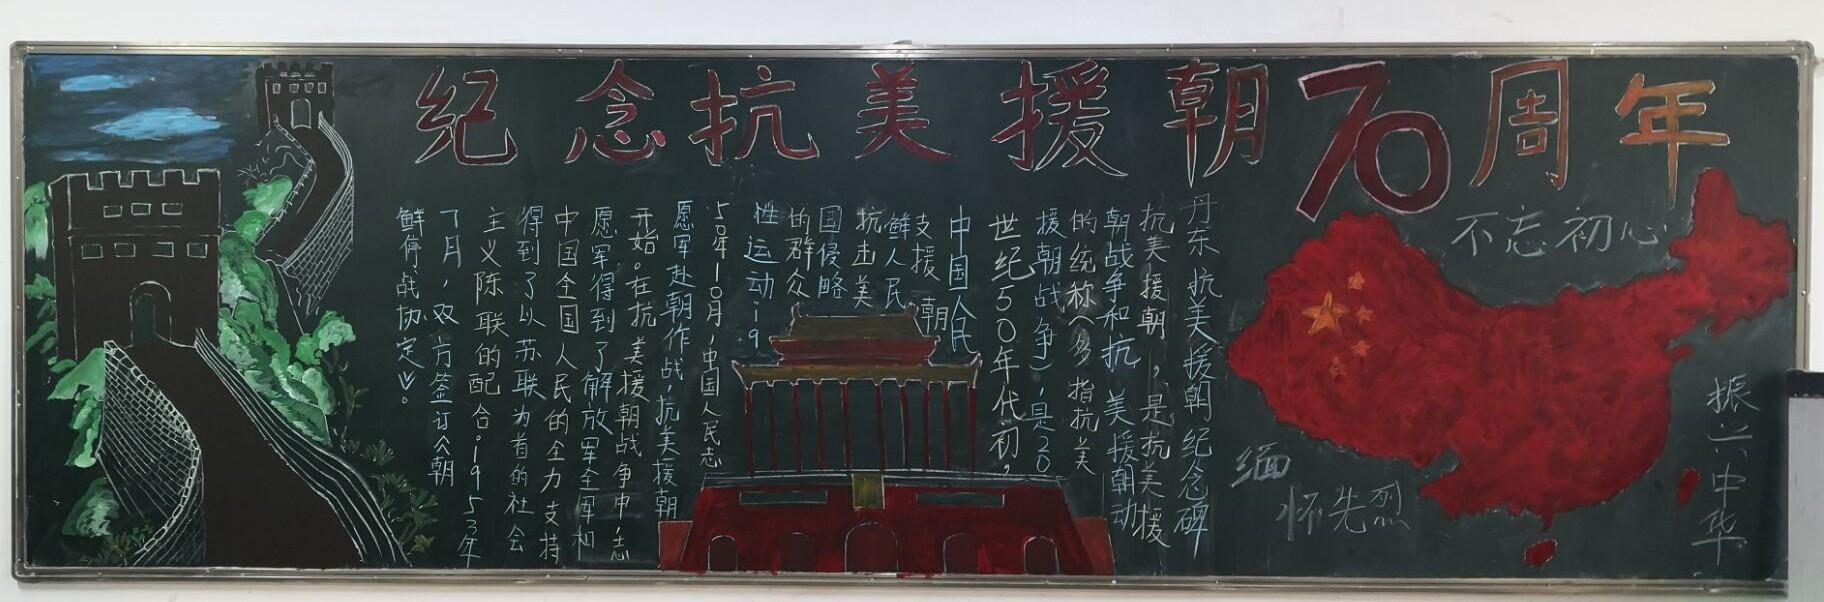 纪念抗美援朝70周年
丹东抗美援朝纪念碑
抗美援朝，是抗美援
朝战争和抗美援朝动
的统称（多指抗美
援朝战争），是20
世纪50年代初，
中国人民
支援朝
鲜人民
抗击美
国侵略
的群众
性运动。19
50年10月，中国人民志
愿军赴朝作战，抗美援朝
开始。在抗美援朝战争中，志
愿军得到了解放军全军和
中国全国人民的全力支持
得到了以苏联为首的社会
主义陈联的配合。1953年
7月，双方签订《朝
鲜停战协定》。
不忘初心
缅怀先烈
振兴中华